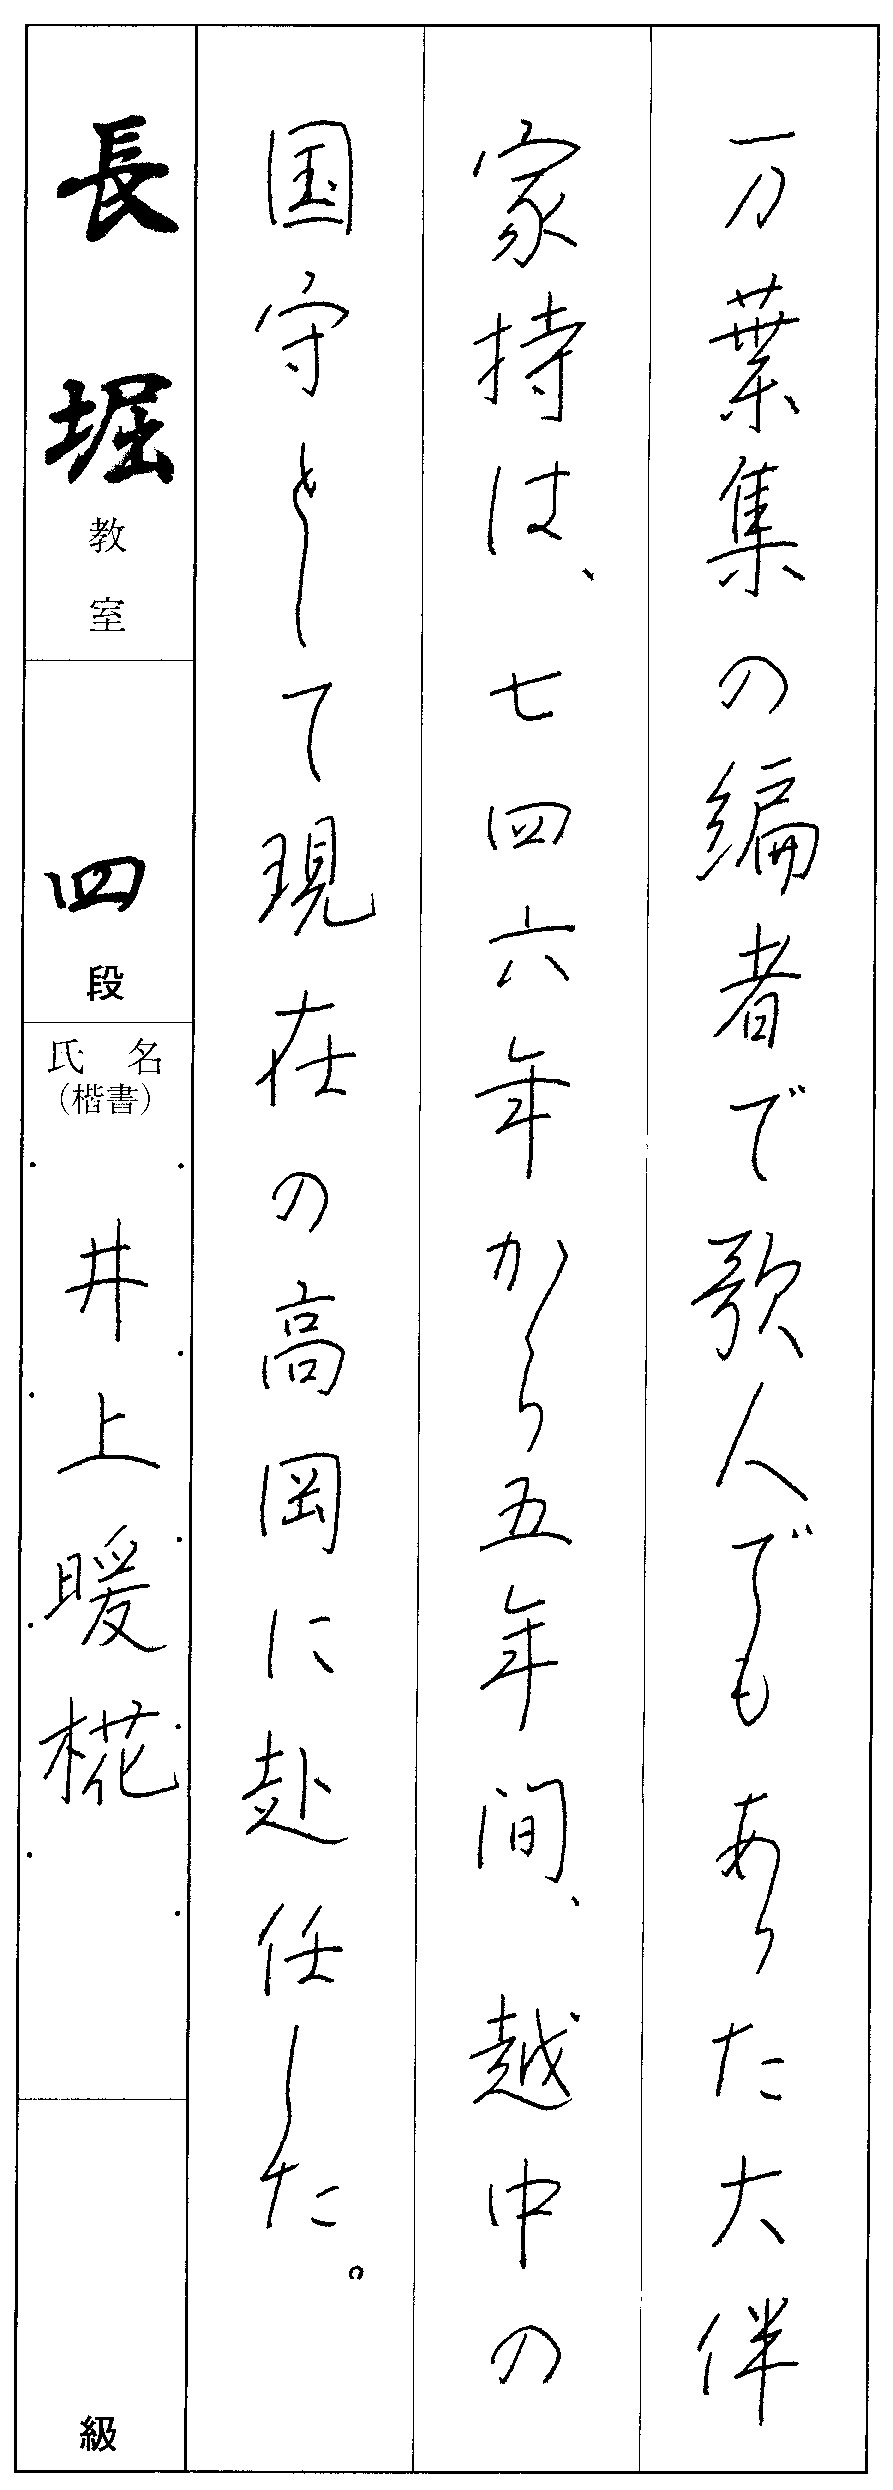 万葉集の編者で歌人でもあった大伴
家持は、七四六年から五年間、越中の
国守として現在の高岡に赴任した。
長堀教室
四段
氏名
（楷書）
井上暖椛
級